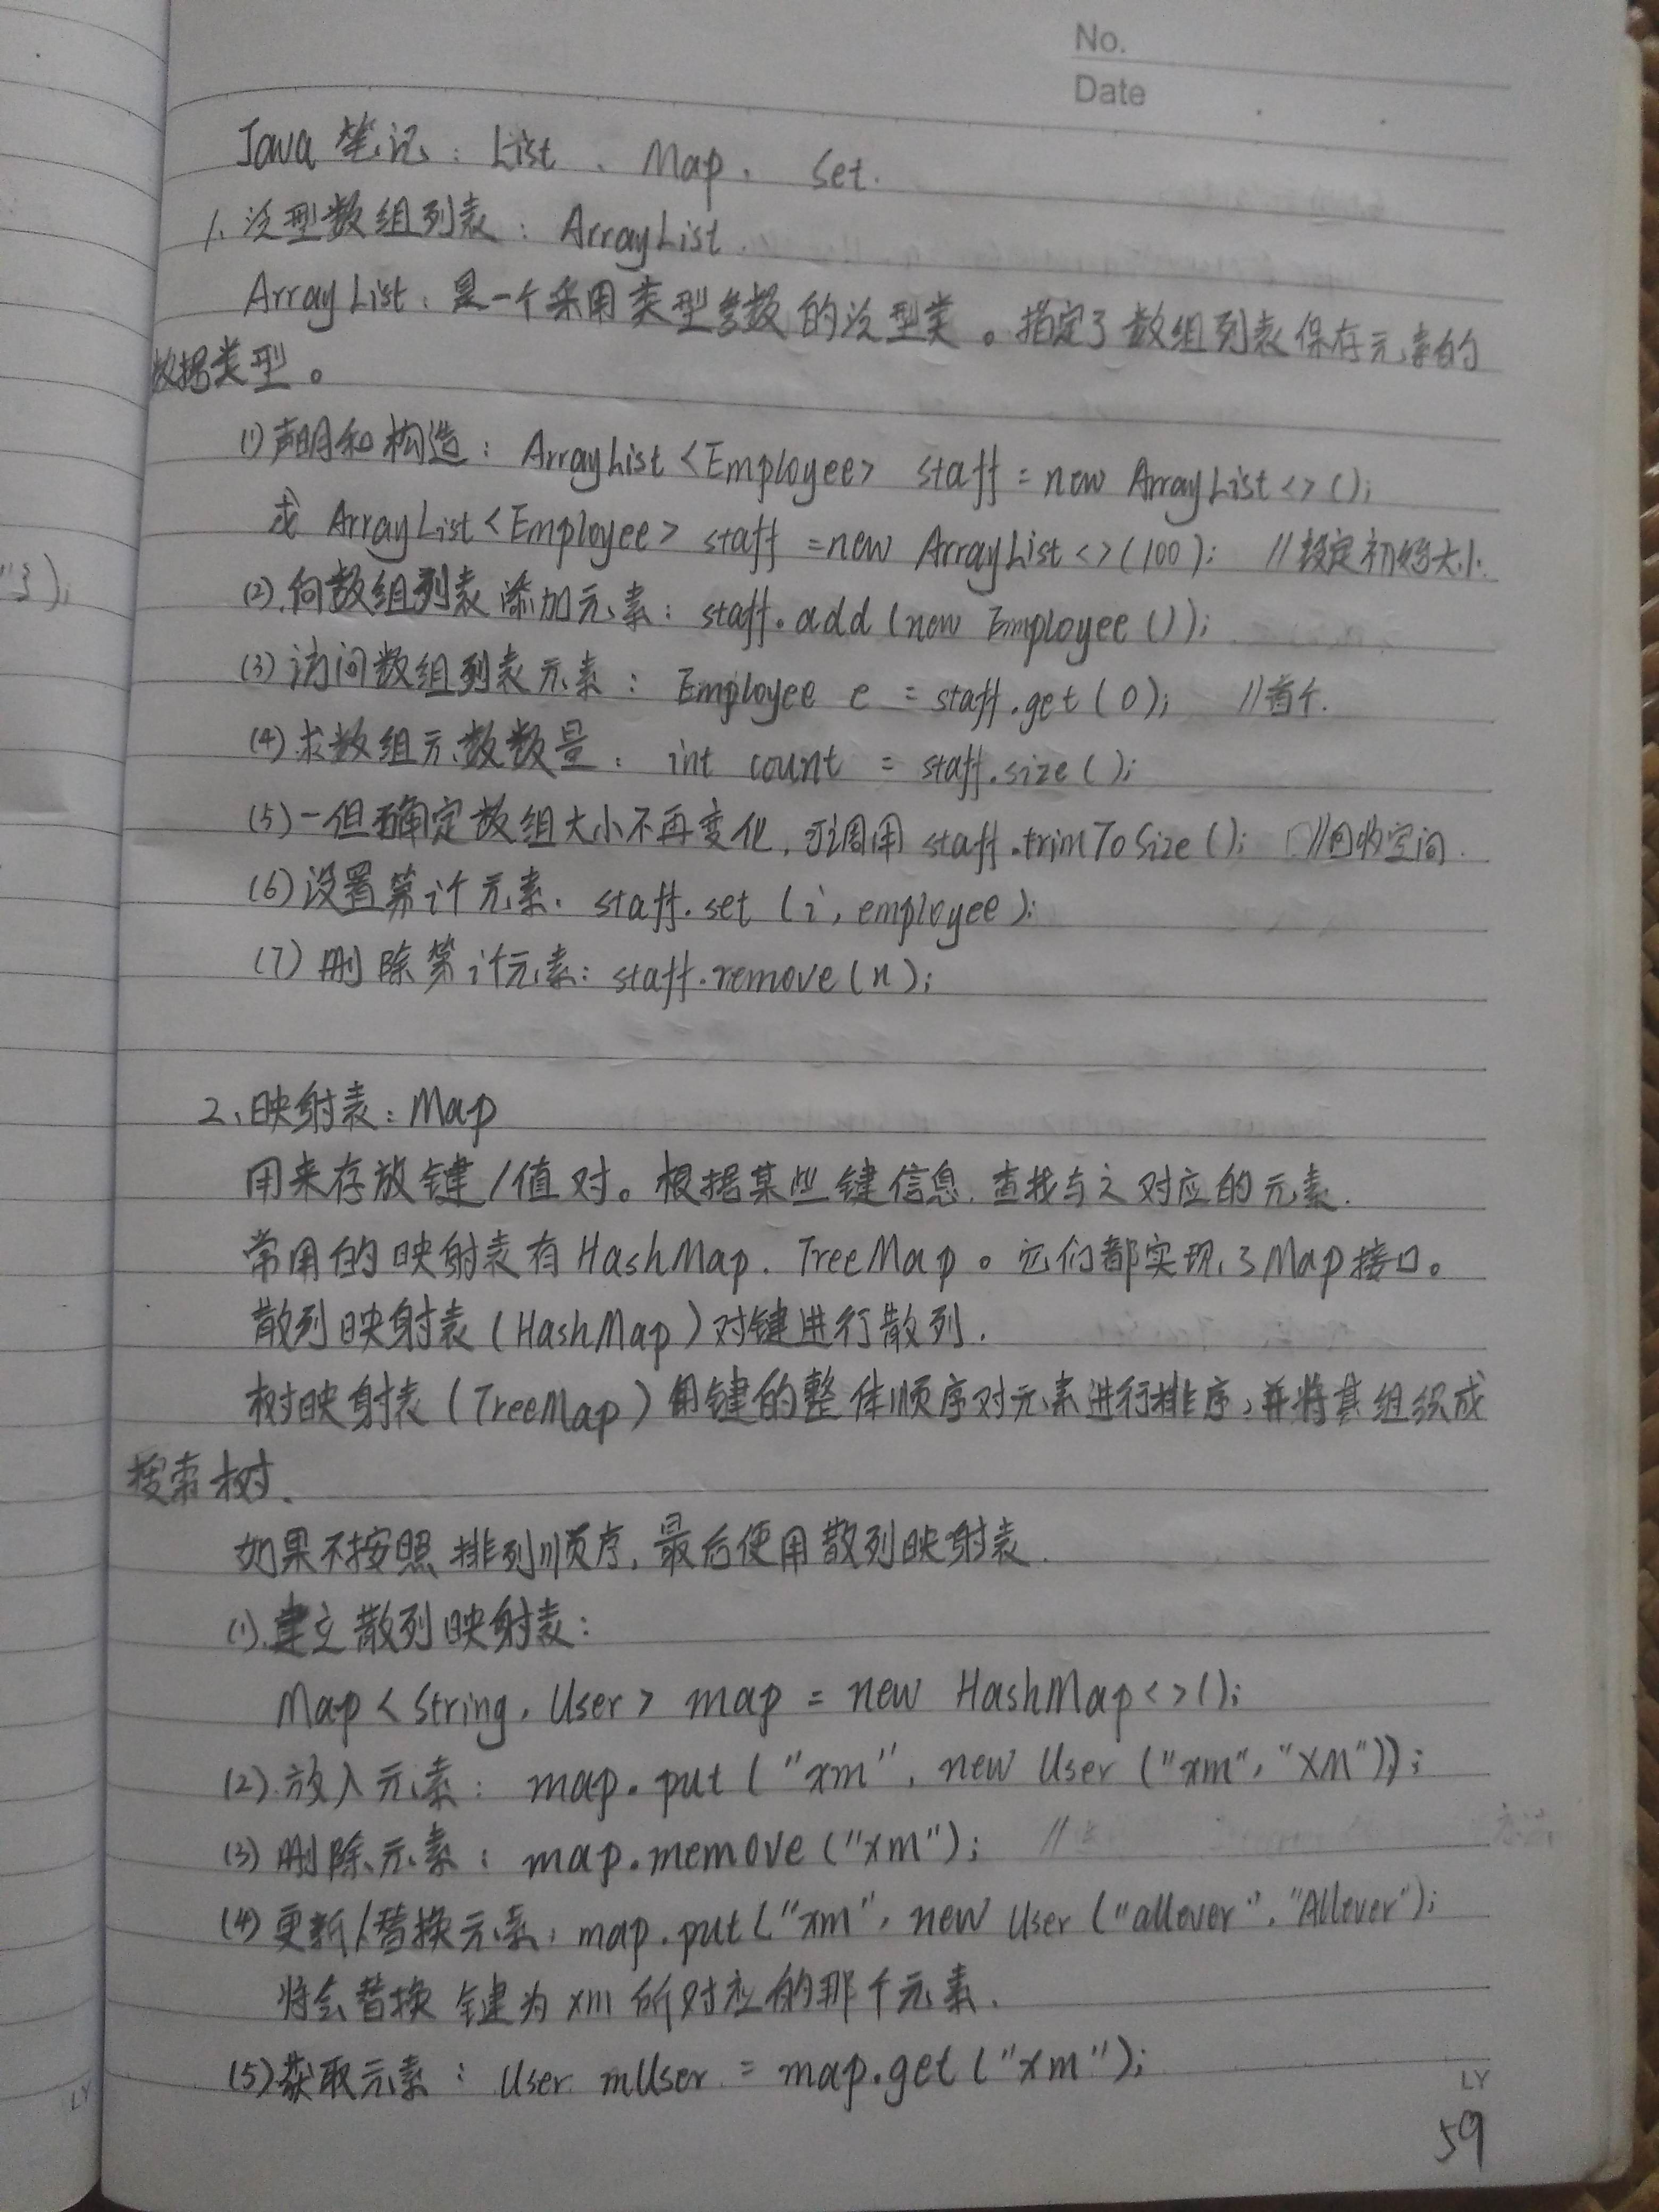 No.
Date
Java 笔记：List、Map、Set.
1、泛型数组列表：ArrayList.
ArrayList：是一个采用类型参数的泛型类。指定了数组列表保存元素的
数据类型。
(1)声明和构造：ArrayList<Employee> staff = new ArrayList<>();
或 ArrayList<Employee> staff = new ArrayList<>(100); //设定初始大小.
(2).向数组列表添加元素：staff.add(new Employee());
(3)访问数组列表元素：Employee e = staff.get(0); //首个.
(4)求数组元数数量：int count = staff.size();
(5)一但确定数组大小不再变化,可调用 staff.trimToSize(); //回收空间.
(6)设置第i个元素. staff.set(i, employee);
(7)删除第i个元素：staff.remove(n);
2、映射表：Map
用来存放键/值对。根据某些键信息,查找与之对应的元素.
常用的映射表有HashMap、TreeMap。它们都实现了Map接口。
散列映射表(HashMap)对键进行散列.
树映射表(TreeMap)用键的整体顺序对元素进行排序,并将其组织成
搜索树.
如果不按照排列顺序,最后使用散列映射表.
(1).建立散列映射表：
Map<String, User> map = new HashMap<>();
(2).放入元素：map.put("xm", new User("xm", "XM"));
(3)删除元素：map.memove("xm"); //
(4)更新/替换元素：map.put("xm", new User("allever", "Allever");
将会替换键为xm所对应的那个元素.
(5)获取元素：User mUser = map.get("xm");
LY
59
"});
LY